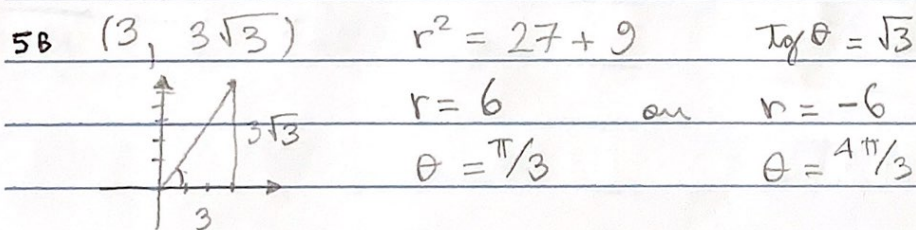 5B (3, 3√3) r² = 27 + 9 Tg θ = √3
r = 6 ou r = -6
θ = π/3 θ = 4π/3
3√3
3